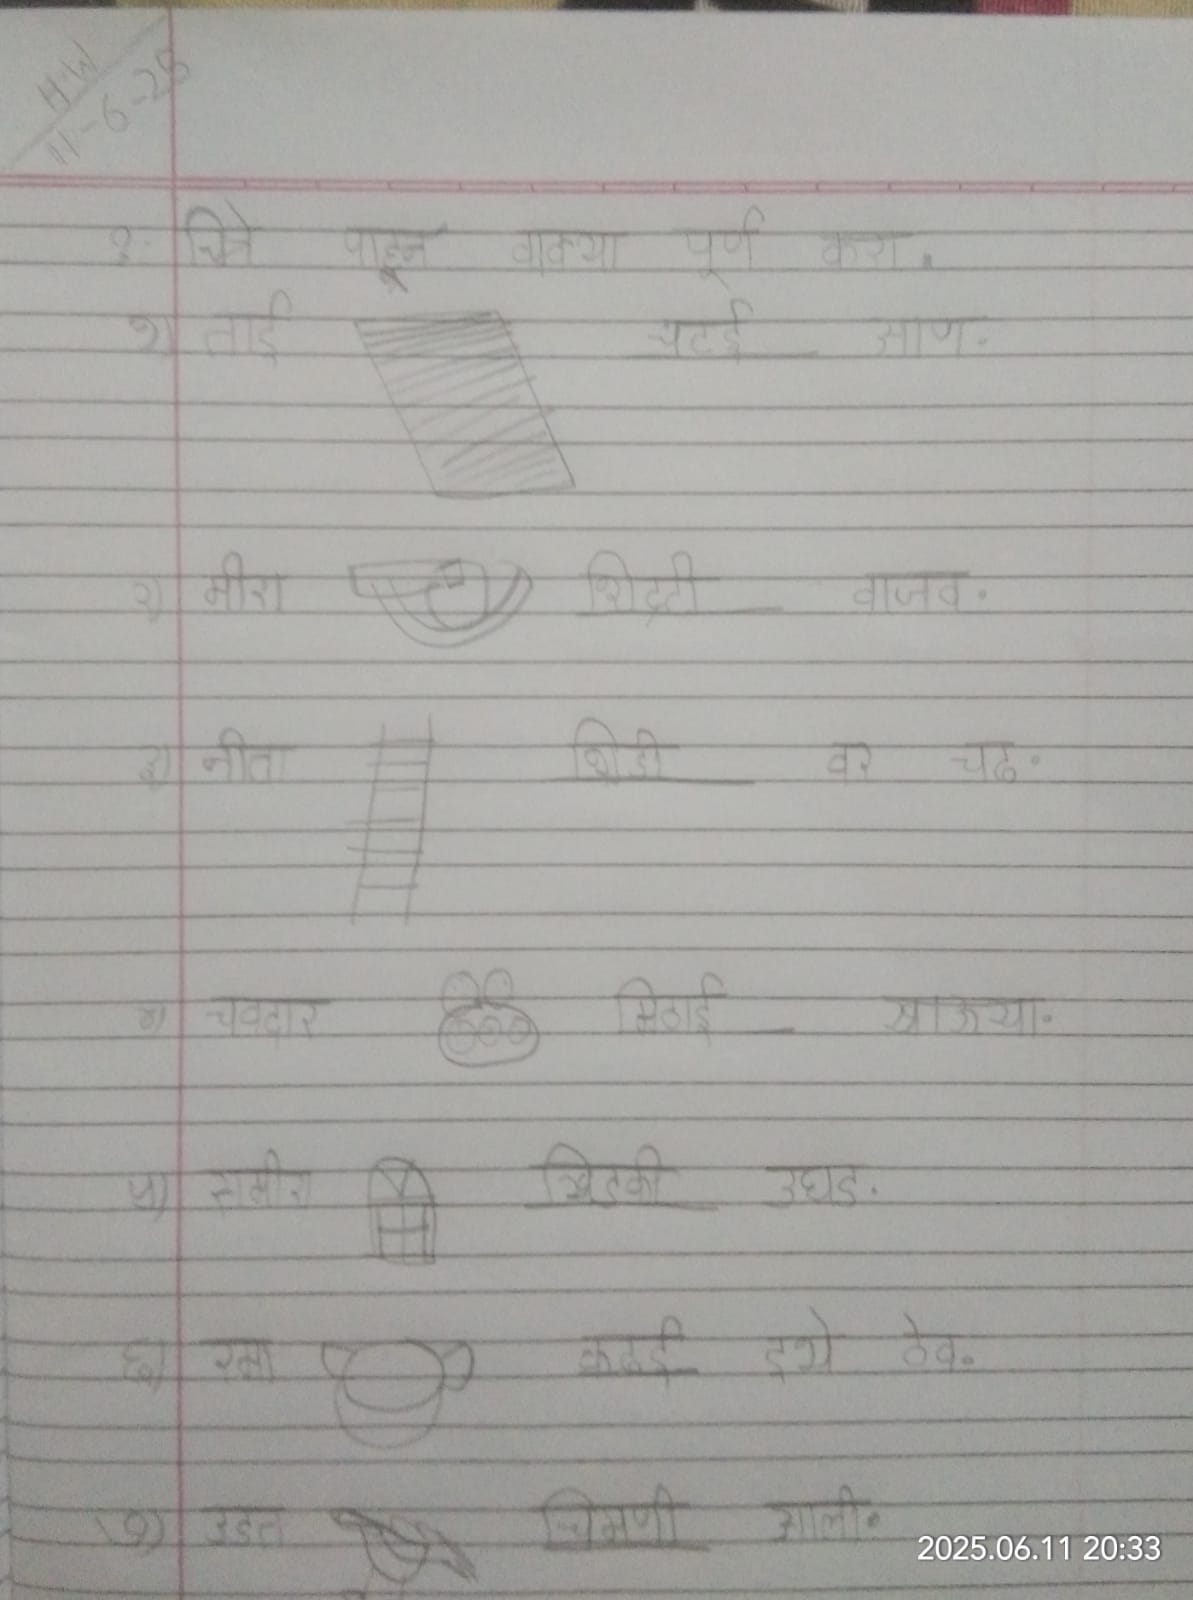 H.W
11-6-25
१. चित्रे पाहून वाक्या पूर्ण करा.
१) ताई चटई आण.
२) मीरा शिट्टी वाजव.
३) नीता शिडी वर चढ.
४) चवदार मिठाई खाऊया.
५) समीरा खिडकी उघड.
६) रमा कढई इथे ठेव.
७) उडत चिमणी आली.
2025.06.11 20:33